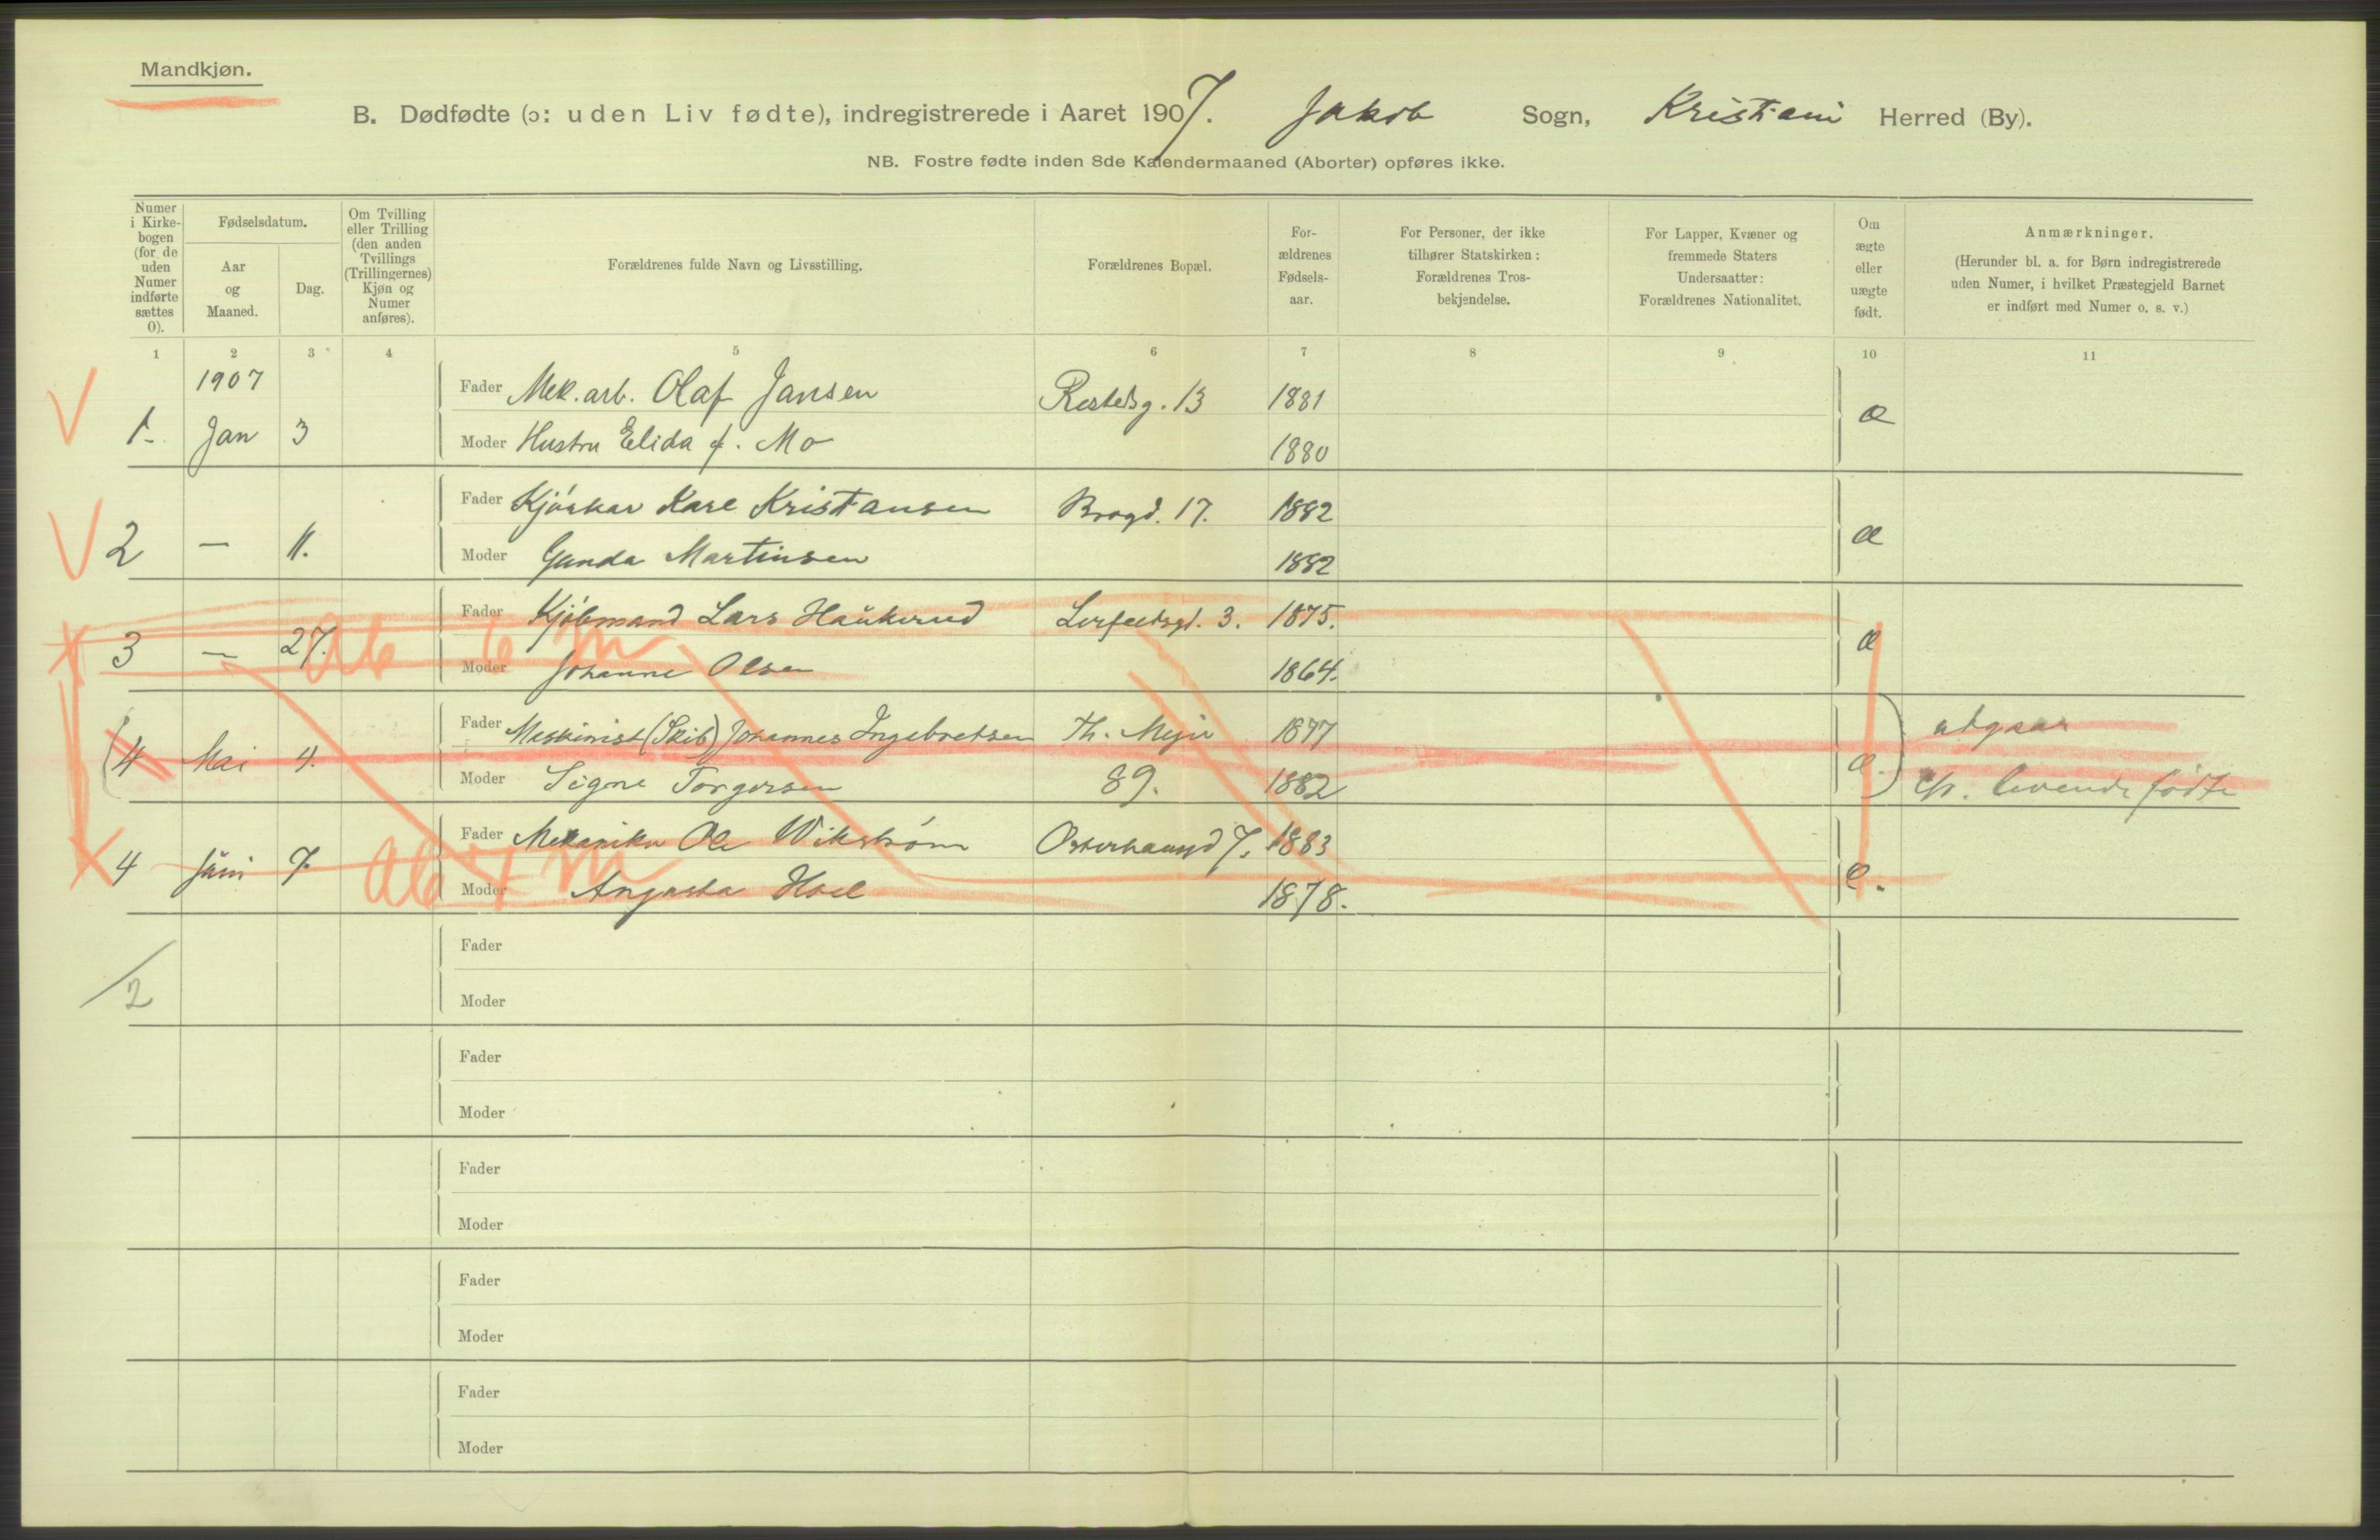 Mandkjøn.
B. Dødfødte (ɔ: uden Liv fødte), indregistrerede i Aaret 1907. Jakob Sogn, Kristiani Herred (By).
NB. Fostre fødte inden 8de Kalendermaaned (Aborter) opføres ikke.
Numer i Kirke-bogen (for de uden Numer indførte sættes 0).
Fødselsdatum.
Aar og Maaned.
Dag.
Om Tvilling eller Trilling (den anden Tvillings (Trillingernes) Kjøn og Numer anføres).
Forældrenes fulde Navn og Livsstilling.
Forældrenes Bopæl.
For-ældrenes Fødsels-aar.
For Personer, der ikke tilhører Statskirken: Forældrenes Tros-bekjendelse.
For Lapper, Kvæner og fremmede Staters Undersaatter: Forældrenes Nationalitet.
Om ægte eller uægte født.
Anmærkninger.
(Herunder bl. a. for Børn indregistrerede uden Numer, i hvilket Præstegjeld Barnet er indført med Numer o. s. v.)
1 2 3 4 5 6 7 8 9 10 11
1907
Fader Mek. arb. Olaf Jansen 13 1881
1. Jan 3 æ
Moder Hustru Elida f. Mo 1880
Fader Kjørkar Karl Kristiansen Brogd. 17. 1882
2 — 11. æ
Moder Gunda Martinsen 1882
Fader Kjøbmand Lars Haukerud 3. 1875.
3 — 27. Ab 6 m æ
Moder Johanne Olsen 1864.
Fader Maskinist (Skib) Johannes Ingebretsen Th. Mejer 1877 udgaar
(4 Mai 4. æ.
Moder Signe Torgersen 89. 1882 cfr. levende fødte
Fader Mekaniker Ole Wikstrøm Osterhausgd 7. 1883
4 Juni 7. Ab 7 m æ.
Moder Augusta Hoel 1878.
Fader
2
Moder
Fader
Moder
Fader
Moder
Fader
Moder
Fader
Moder